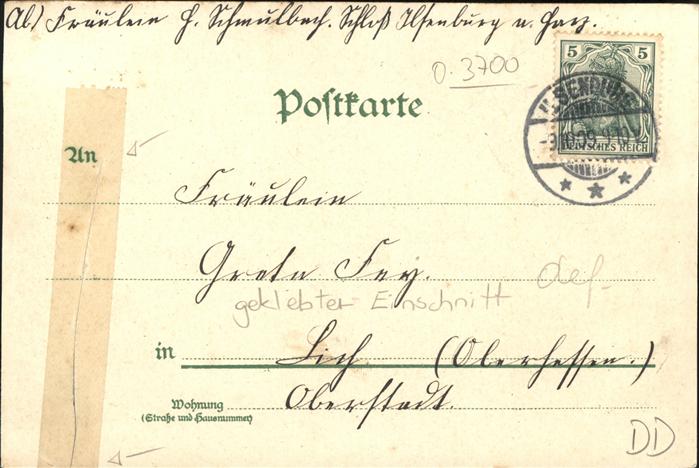 Ab/ Fräulein H. Schmulbach. Schloß Ilsenburg a. Harz.
0.3700
5 5
DEUTSCHES REICH
ILSENBURG
Postkarte
An
Fräulein
Greta Fey.
def.
geklebter Einschnitt
in Lich (Oberhessen.)
Wohnung
(Straße und Hausnummer)
Oberstadt.
DD